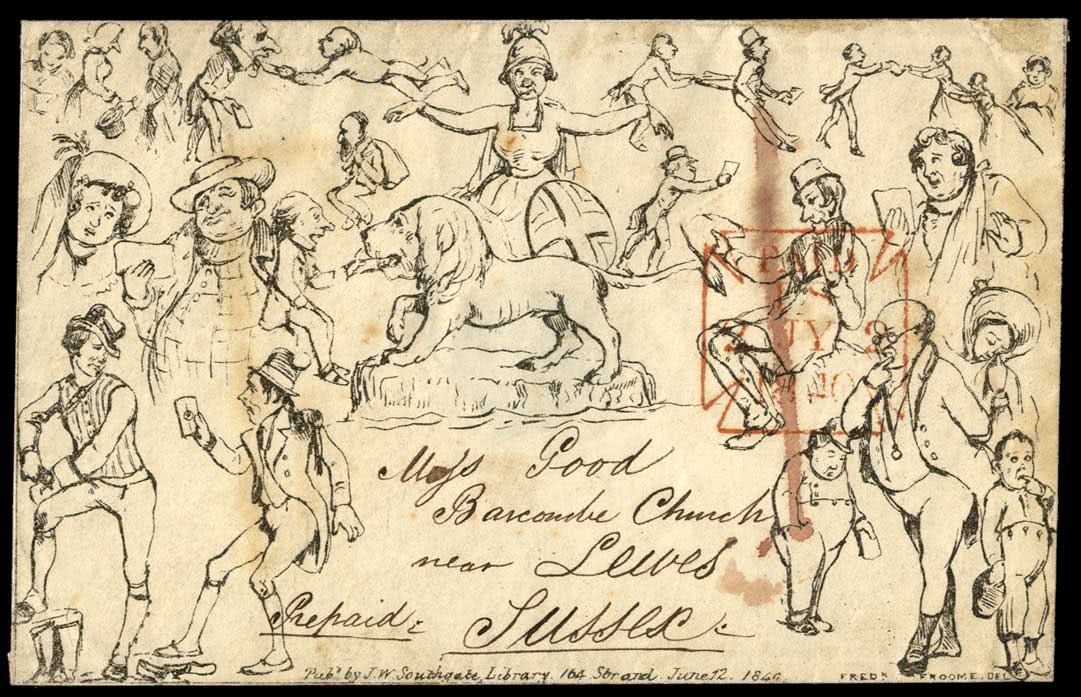 PAID
2 JY 2
1840
Miss Good
Barcombe Church
near Lewes
Prepaid
Sussex
Pubd. by J.W. Southgate, Library. 164 Strand. June 12. 1840
FREDK. FROOME. DEL